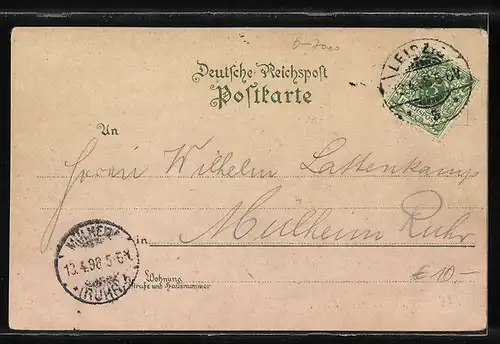 Deutsche Reichspost
Postkarte
LEIPZIG
5
An
Herrn Wilhelm Lattenkamp
in Mülheim Ruhr
MÜLHEIM
13.4.98.5-6N.
(RUHR)
Wohnung
Straße und Hausnummer
€ 10,-